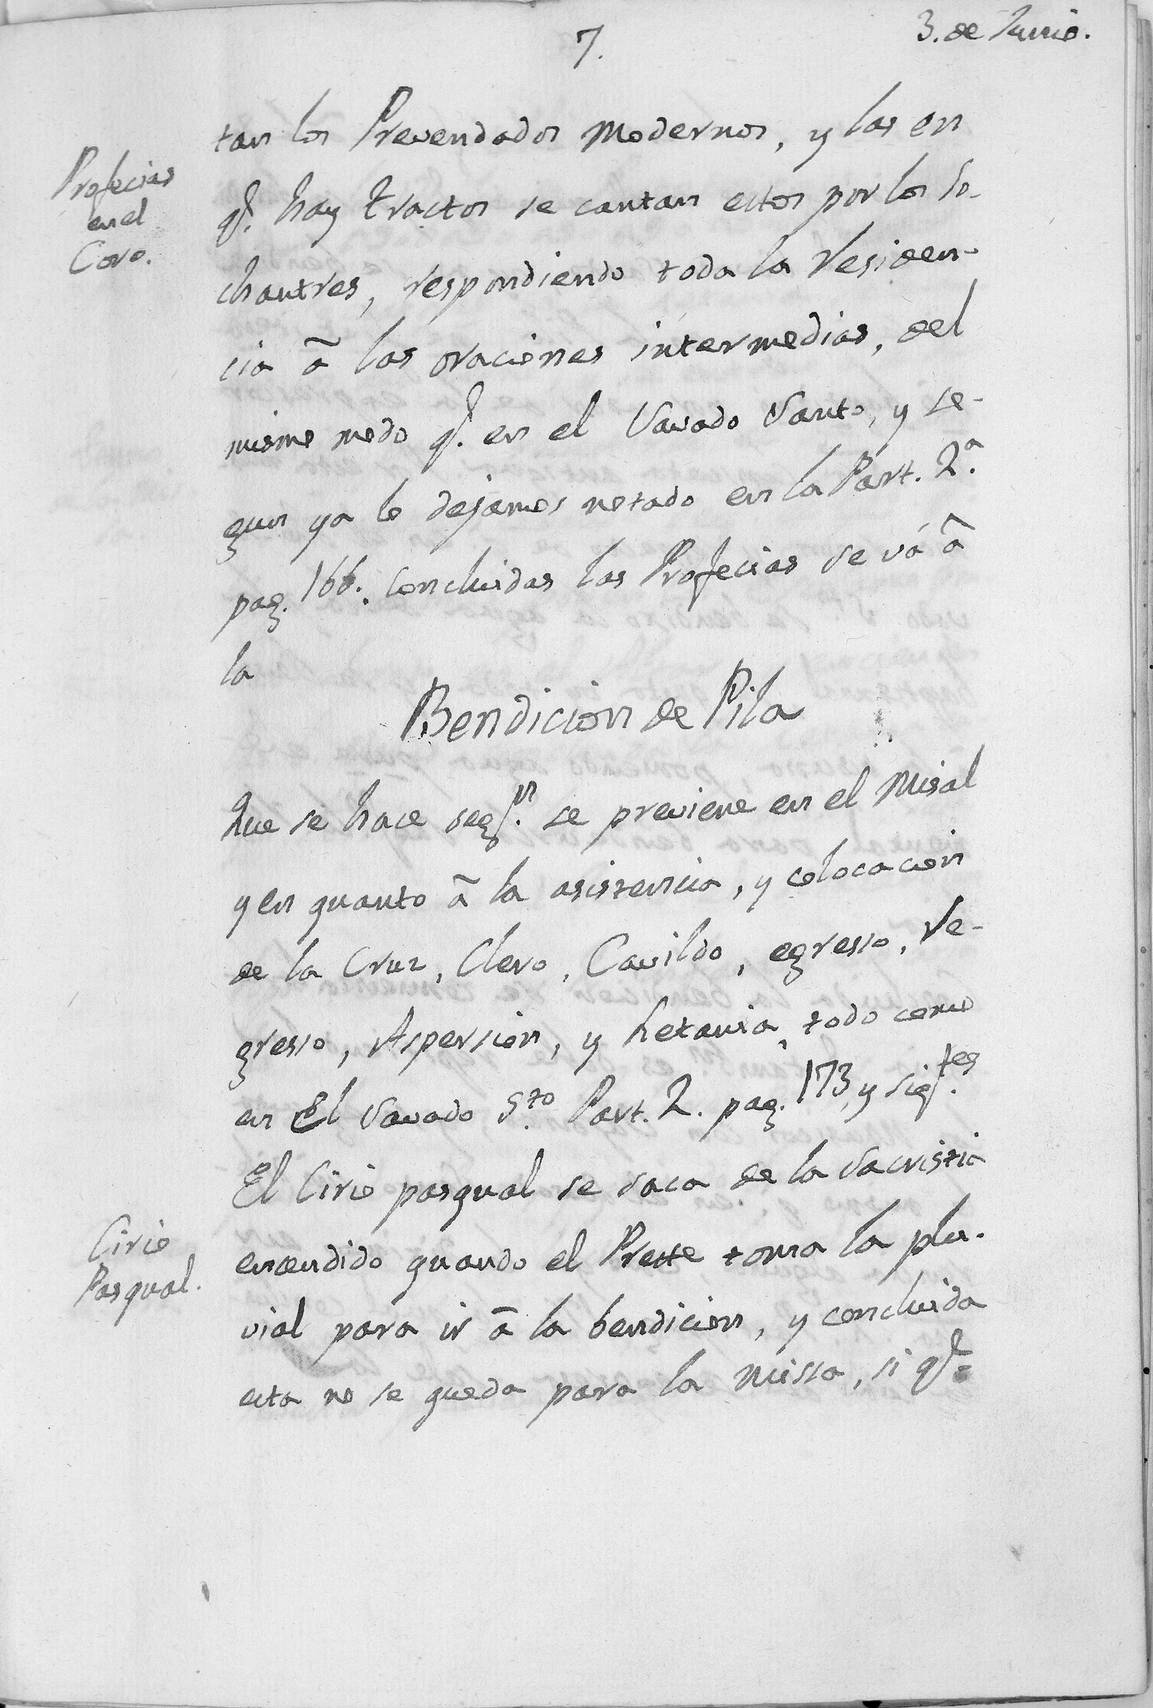 7.
3. de Junio.
tan los Prevendados Modernos, y las en
Profecias
en el
Coro.
q.e hay tractos se cantan estos por los So-
chantres, respondiendo toda la Residen-
cia â las oraciones intermedias, del
mismo modo q.e en el Savado Santo, y se-
gun ya lo dejamos notado en la Part. 2.a
pag. 166. Concluidas las Profecias se vá â
la
Bendicion de Pila
Que se hace seg.n se previene en el Misal
y en quanto â la asistencia, y colocacion
de la Cruz, Clero, Cavildo, egresso, re-
gresso, Aspersion, y Letania, todo como
en El Savado S.to Part. 2. pag. 173, y sig.tes
El Cirio pasqual se saca de la Sacristia
Cirio
Pasqual.
encendido quando el Preste toma la plu-
vial para ir â la bendicion, y concluida
esta no se queda para la Missa, si q.e